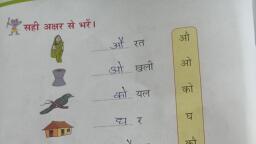 सही अक्षर से भरें।
औ रत औ
ओ खली ओ
को यल को
घ र घ
कौ